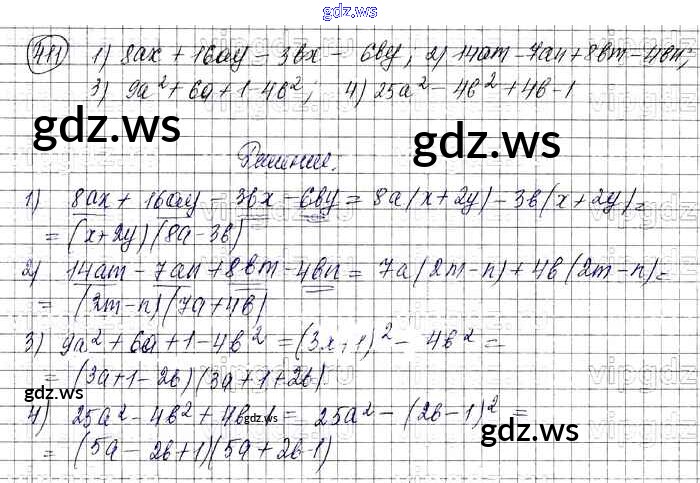 gdz.ws
411 1) 8ax + 16ay - 3bx - 6by; 2) 14am - 7an + 8bm - 4bn;
3) 9a² + 6a + 1 - 4b²; 4) 25a² - 4b² + 4b - 1
gdz.ws gdz.ws
Решение.
1) 8ax + 16ay - 3bx - 6by = 8a(x+2y) - 3b(x+2y) =
= (x+2y)(8a-3b)
2) 14am - 7an + 8bm - 4bn = 7a(2m-n) + 4b(2m-n) =
= (2m-n)(7a+4b)
3) 9a² + 6a + 1 - 4b² = (3x+1)² - 4b² =
= (3a+1-2b)(3a+1+2b)
gdz.ws gdz.ws
4) 25a² - 4b² + 4b - 1 = 25a² - (2b-1)² =
= (5a-2b+1)(5a+2b-1)
gdz.ws